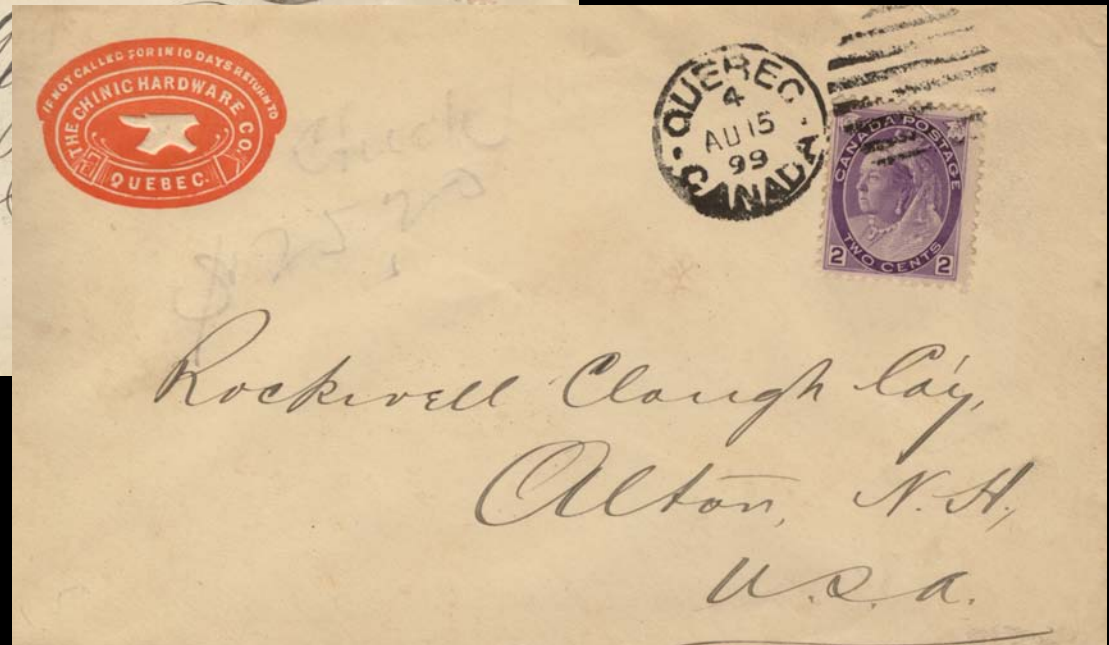 IF NOT CALLED FOR IN 10 DAYS RETURN TO
THE CHINIC HARDWARE CO.
QUEBEC.
QUEBEC
4
AU 15
99
CANADA
CANADA POSTAGE
TWO CENTS
2 2
Rockwell Clough Co'y,
Alton, N.H,
U.S.A.